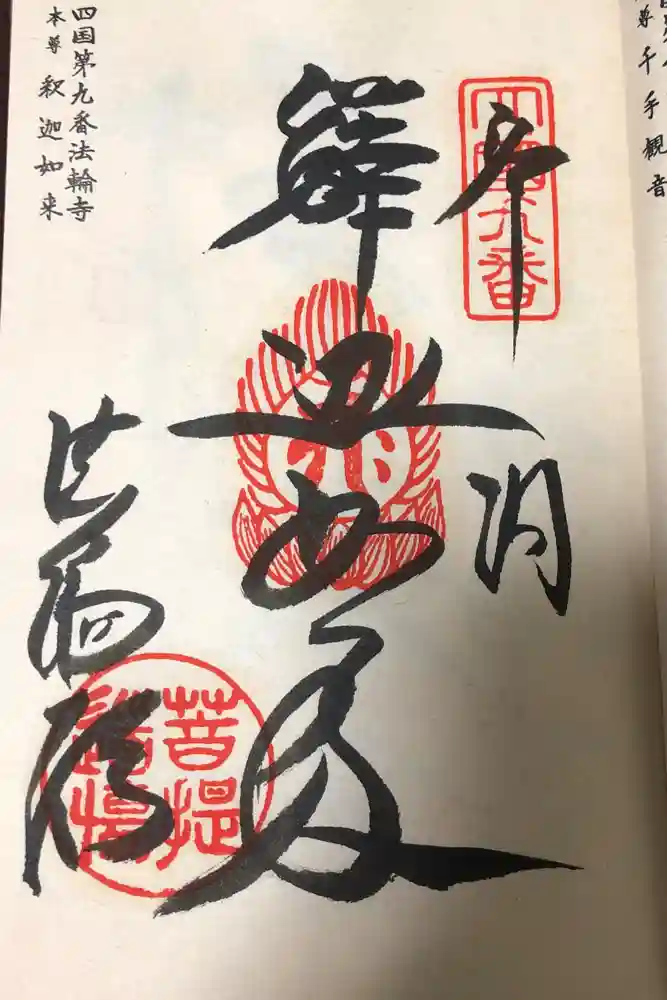 千手観音
四国九番
奉納
釋迦如来
菩提道場
四国第九番法輪寺
本尊 釈迦如来